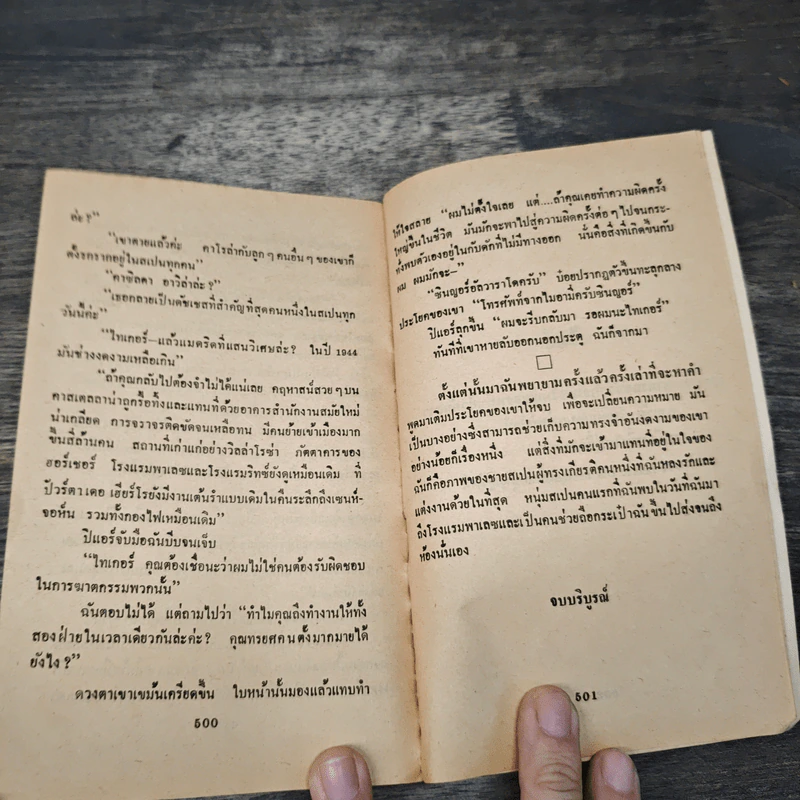 ค่ะ?”
“เขาตายแล้วค่ะ คาโรล่ากับลูกๆคนอื่นๆของเขาก็
ตั้งรกรากอยู่ในสเปนทุกคน”
“คาซิลดา อาวิล่าล่ะ?”
“เธอกลายเป็นดัชเชสที่สำคัญที่สุดคนหนึ่งในสเปนทุก
วันนี้ค่ะ”
“ไทเกอร์—แล้วแมดริดที่แสนวิเศษล่ะ? ในปี 1944
มันช่างงดงามเหลือเกิน”
“ถ้าคุณกลับไปต้องจำไม่ได้แน่เลย คฤหาสน์สวยๆบน
คาสเตลลาน่าถูกรื้อทิ้งและแทนที่ด้วยอาคารสำนักงานสมัยใหม่
น่าเกลียด การจราจรติดขัดจนเหลือทน มีคนย้ายเข้าเมืองมาก
ขึ้นสี่ล้านคน สถานที่เก่าแก่อย่างวิลล่าโรซ่า ภัตตาคารของ
ฮอร์เชอร์ โรงแรมพาเลซและโรงแรมริทซ์ยังดูเหมือนเดิม ที่
ปัวร์ตา เดอ เฮียร์โรยังมีงานเต้นรำแบบเดิมในคืนระลึกถึงเซนท์-
จอห์น รวมทั้งกองไฟเหมือนเดิม”
ปิแอร์จับมือฉันบีบจนเจ็บ
“ไทเกอร์ คุณต้องเชื่อนะว่าผมไม่ใช่คนต้องรับผิดชอบ
ในการฆาตกรรมพวกนั้น”
ฉันตอบไม่ได้ แต่ถามไปว่า “ทำไมคุณถึงทำงานให้ทั้ง
สองฝ่ายในเวลาเดียวกันล่ะค่ะ? คุณทรยศคนตั้งมากมายได้
ยังไง?”
ดวงตาเขาเขม้นเครียดขึ้น ใบหน้านั้นมองแล้วแทบทำ
500
ให้ใจสลาย “ผมไม่ตั้งใจเลย แต่....ถ้าคุณเคยทำความผิดครั้ง
ใหญ่ขึ้นในชีวิต มันมักจะพาไปสู่ความผิดครั้งต่อๆไปจนกระ-
ทั่งพบตัวเองอยู่ในกับดักที่ไม่มีทางออก นั่นคือสิ่งที่เกิดขึ้นกับ
ผม ผมมักจะ—”
“ซินญอร์อัลวาราโดครับ” บ๋อยปรากฏตัวขึ้นทะลุกลาง
ประโยคของเขา “โทรศัพท์จากไมอามี่ครับซินญอร์”
ปิแอร์ลุกขึ้น “ผมจะรีบกลับมา รอผมนะไทเกอร์”
ทันทีที่เขาหายลับออกนอกประตู ฉันก็จากมา
ตั้งแต่นั้นมาฉันพยายามครั้งแล้วครั้งเล่าที่จะหาคำ
พูดมาเติมประโยคของเขาให้จบ เพื่อจะเปลี่ยนความหมาย มัน
เป็นบางอย่างซึ่งสามารถช่วยเก็บความทรงจำอันงดงามของเขา
อย่างน้อยก็เรื่องหนึ่ง แต่สิ่งที่มักจะเข้ามาแทนที่อยู่ในใจของ
ฉันก็คือภาพของชายสเปนผู้ทรงเกียรติคนหนึ่งที่ฉันหลงรักและ
แต่งงานด้วยในที่สุด หนุ่มสเปนคนแรกที่ฉันพบในวันที่ฉันมา
ถึงโรงแรมพาเลซและเป็นคนช่วยถือกระเป๋าฉันขึ้นไปส่งจนถึง
ห้องนั่นเอง
จบบริบูรณ์
501